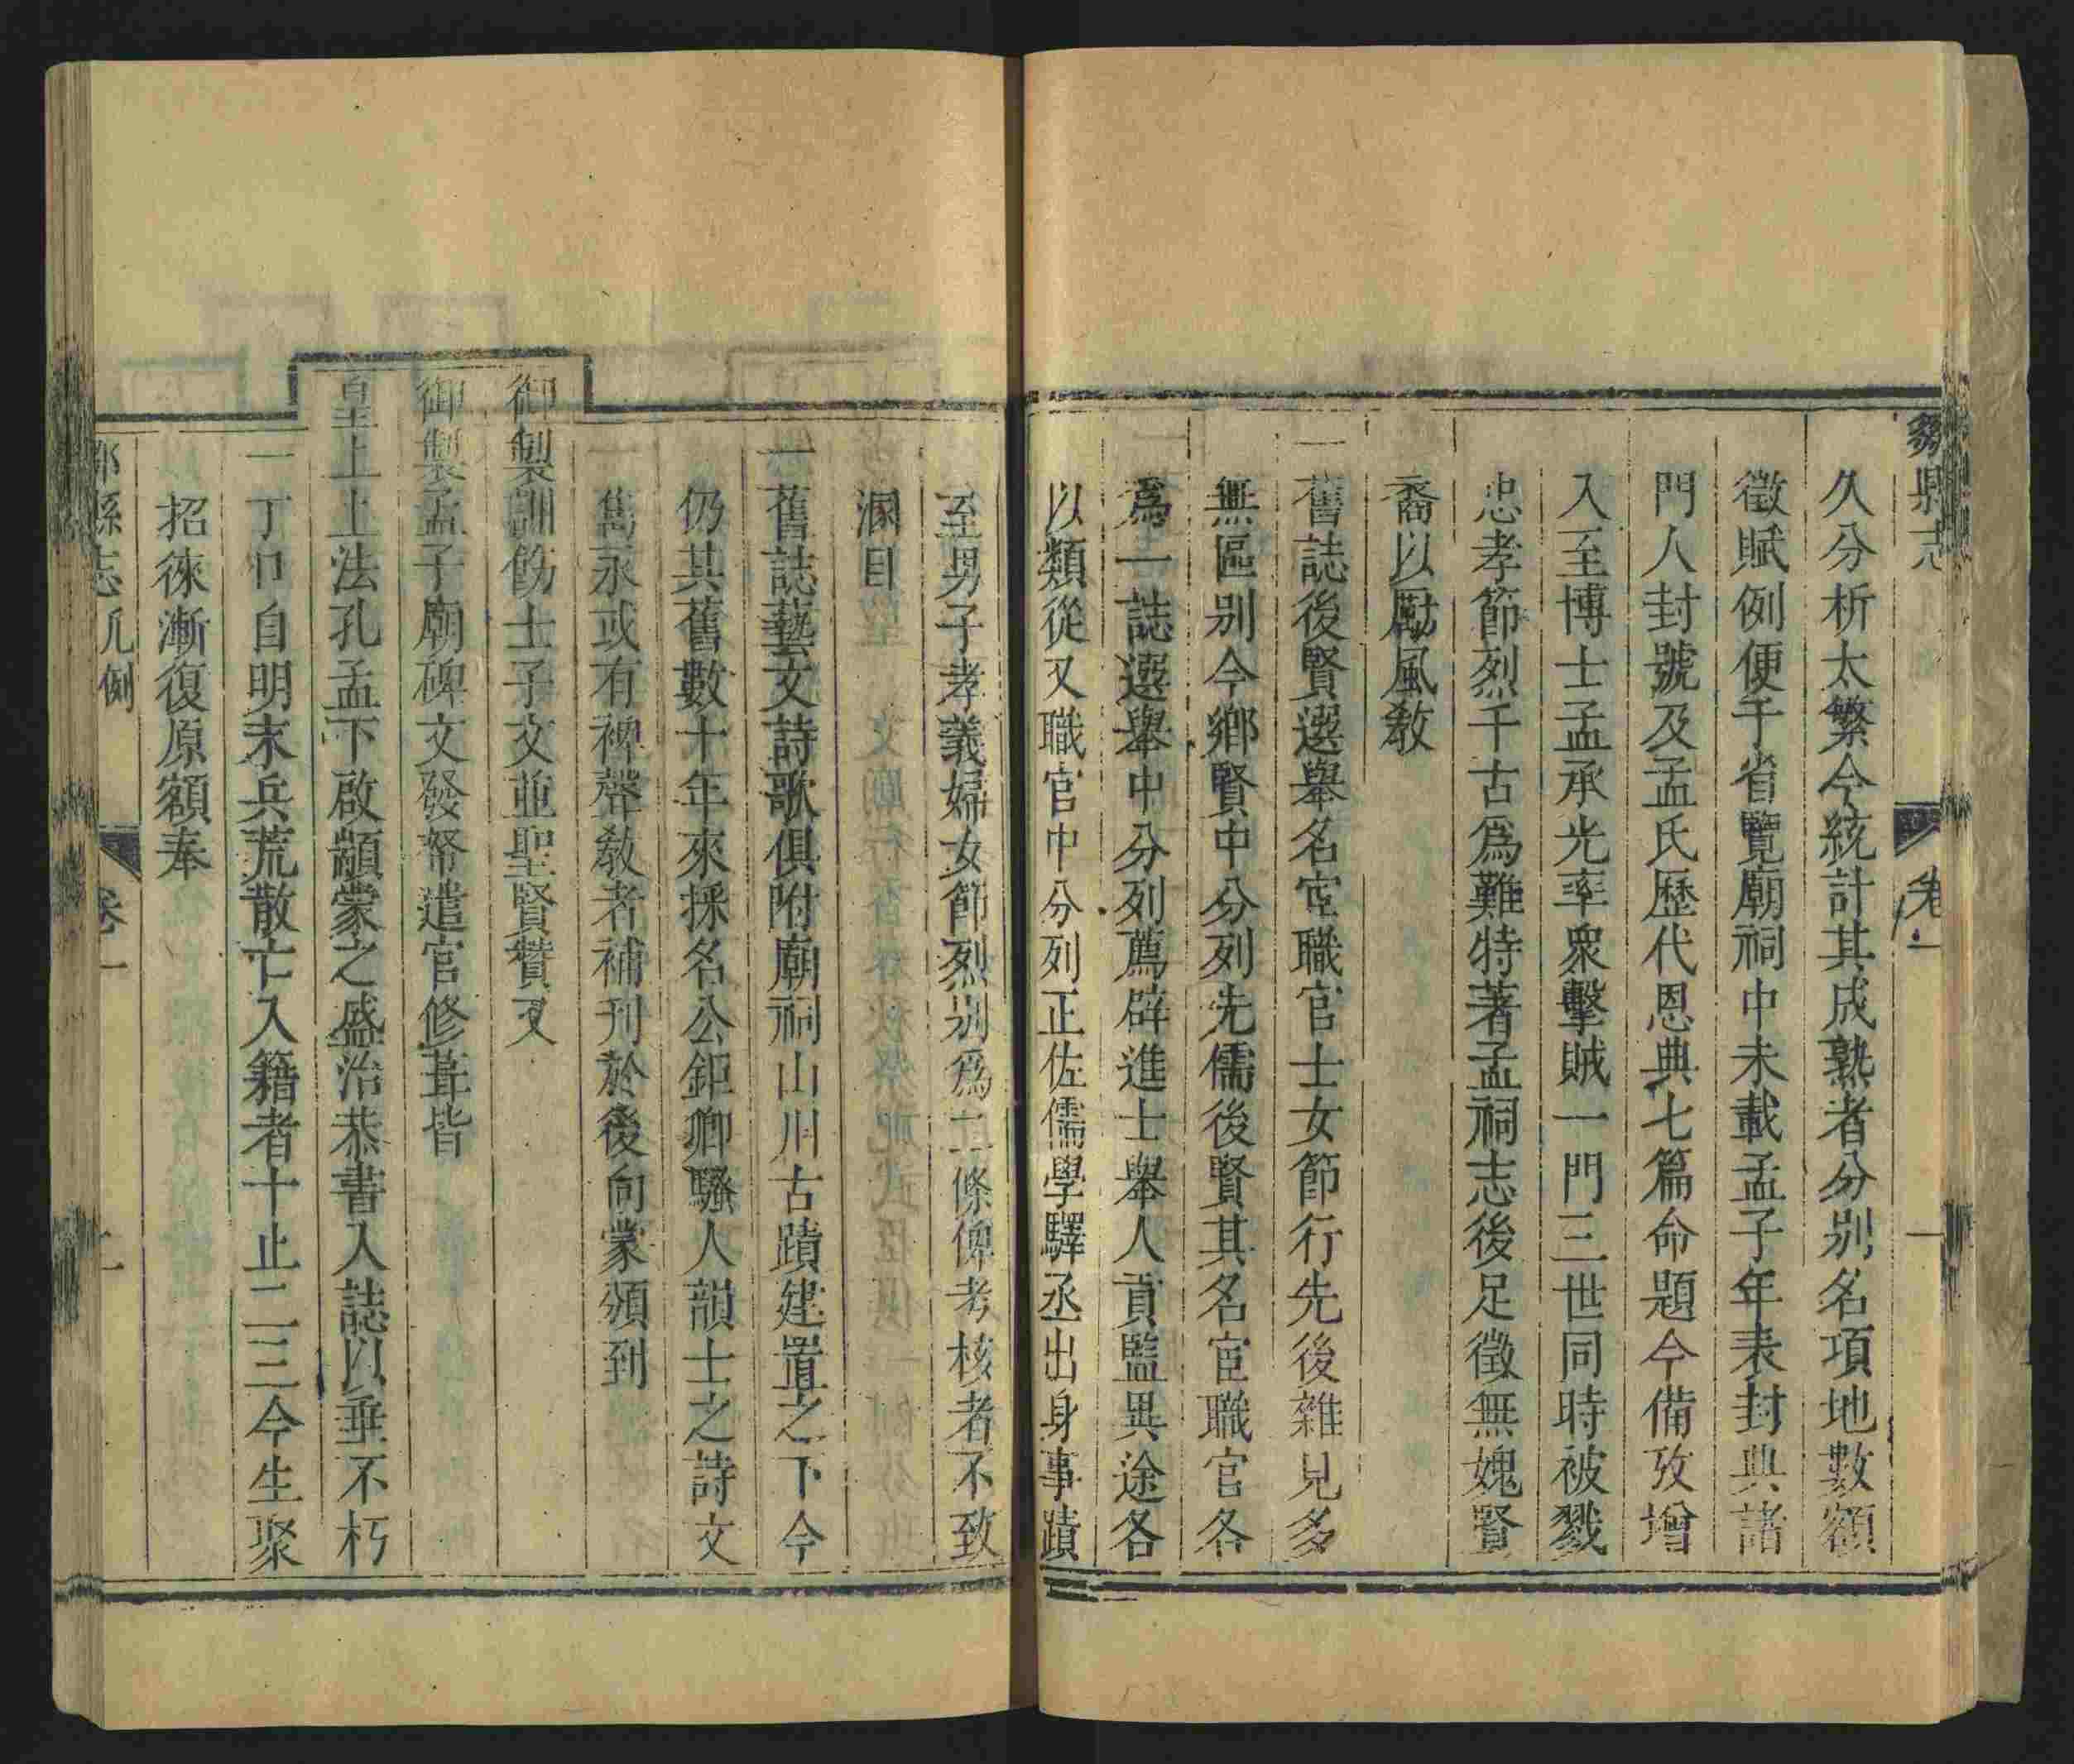 鄒縣志
卷一
一
久分析太繁今統計其成熟者分別名項地數額
徵賦例便于省覽廟祠中未載孟子年表封典諸
門人封號及孟氏歷代恩典七篇命題今備攷增
入至博士孟承光率衆擊賊一門三世同時被戮
忠孝節烈千古爲難特著孟祠志後足徵無媿賢
裔以勵風敎
一舊誌後賢選舉名宦職官士女節行先後雜見多
無區别今鄉賢中分列先儒後賢其名宦職官各
爲一誌選舉中分列薦辟進士舉人貢監異途各
以類從又職官中分列正佐儒學驛丞出身事蹟
至男子孝義婦女節烈别爲二條俾考核者不致
溷目
一舊誌藝文詩歌俱附廟祠山川古蹟建置之下今
仍其舊數十年來採名公鉅卿騷人韻士之詩文
雋永或有裨聲敎者補刊於後向蒙頒到
御製訓飭士子文並聖賢贊又
御製孟子廟碑文發帑遣官修葺皆
皇上上法孔孟下啟顓蒙之盛治恭書入誌以垂不朽
一丁口自明末兵荒散亡入籍者十止二三今生聚
招徠漸復原額奉
鄒縣志凡例
卷一
二